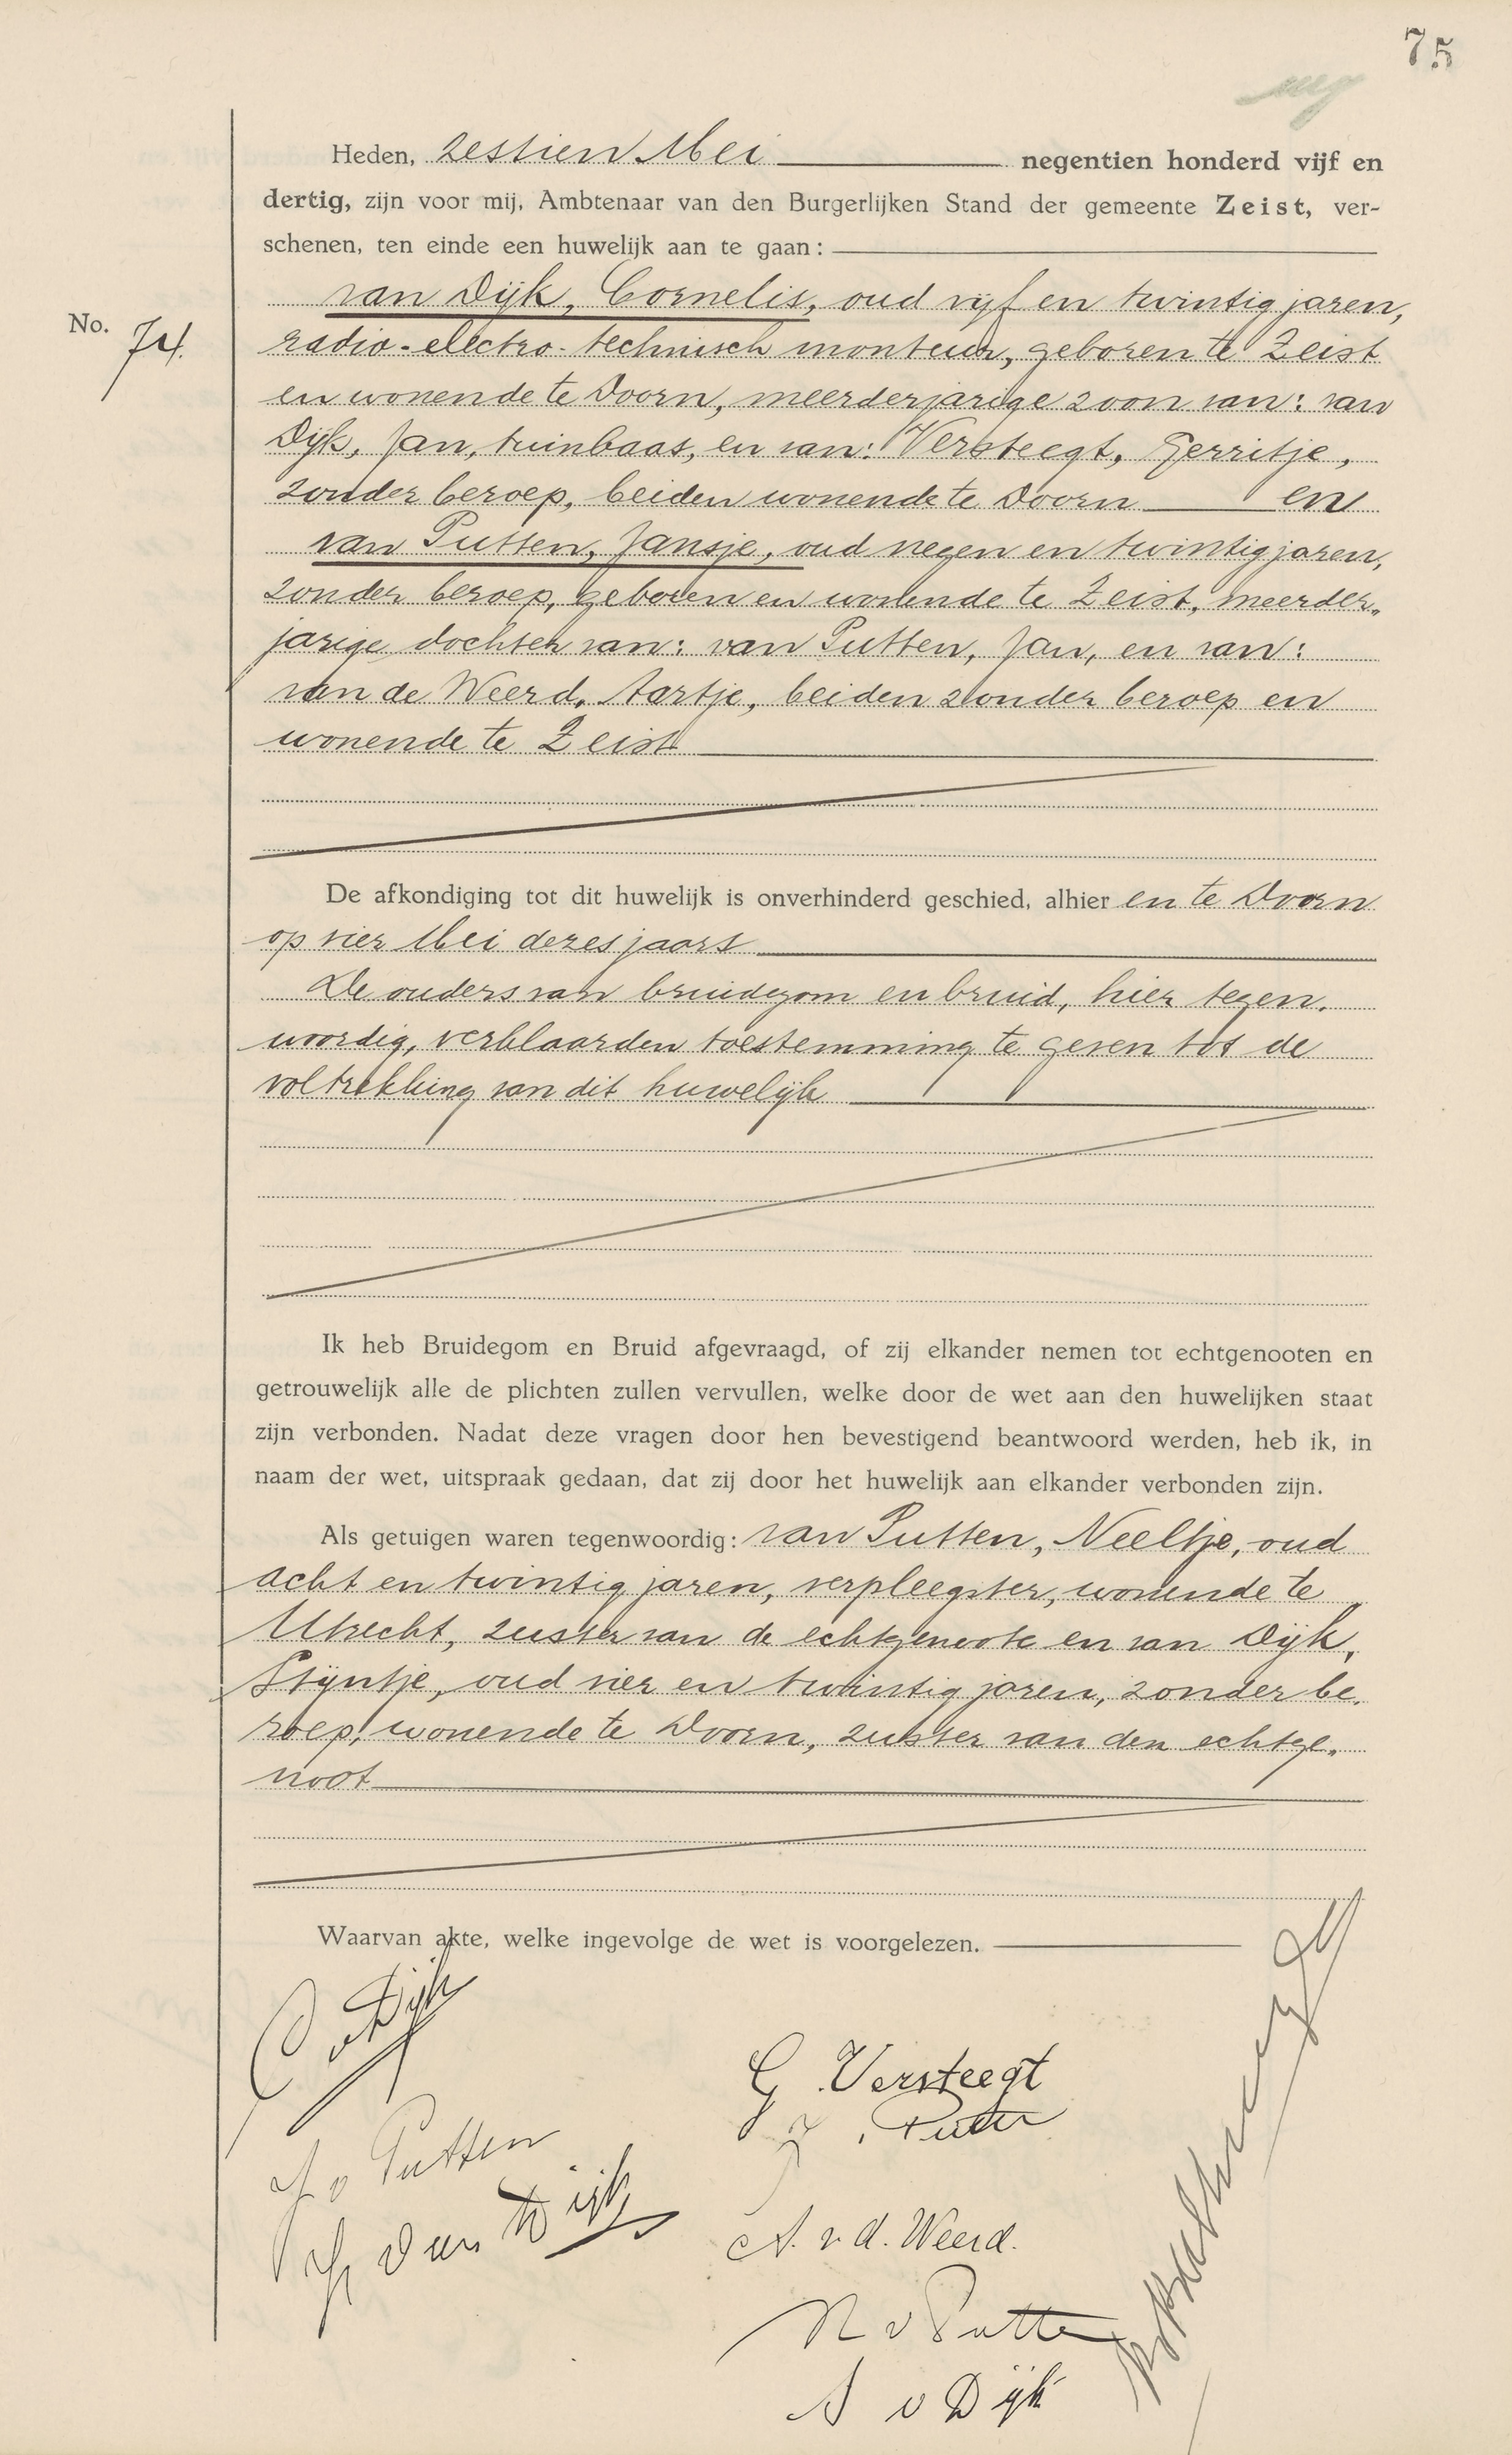 75
Heden, zestien Mei negentien honderd vijf en
dertig, zijn voor mij, Ambtenaar van den Burgerlijken Stand der gemeente Zeist, ver-
schenen, ten einde een huwelijk aan te gaan:
van Dijk, Cornelis, oud vijf en twintig jaren,
No. 74.
radio-electro-technisch monteur, geboren te Zeist
en wonende te Doorn, meerderjarige zoon van: van
Dijk, Jan, tuinbaas, en van: Versteegt, Gerritje,
zonder beroep, beiden wonende te Doorn en
van Putten, Jansje, oud negen en twintig jaren,
zonder beroep, geboren en wonende te Zeist, meerder-
jarige dochter van: van Putten, Jan, en van:
van de Weerd, Aartje, beiden zonder beroep en
wonende te Zeist
De afkondiging tot dit huwelijk is onverhinderd geschied, alhier en te Doorn
op vier Mei dezes jaars
De ouders van bruidegom en bruid, hier tegen-
woordig, verklaarden toestemming te geven tot de
voltrekking van dit huwelijk
Ik heb Bruidegom en Bruid afgevraagd, of zij elkander nemen tot echtgenooten en
getrouwelijk alle de plichten zullen vervullen, welke door de wet aan den huwelijken staat
zijn verbonden. Nadat deze vragen door hen bevestigend beantwoord werden, heb ik, in
naam der wet, uitspraak gedaan, dat zij door het huwelijk aan elkander verbonden zijn.
Als getuigen waren tegenwoordig: van Putten, Neeltje, oud
acht en twintig jaren, verpleegster, wonende te
Utrecht, zuster van de echtgenoote en van Dijk,
Stijntje, oud vier en twintig jaren, zonder be-
roep, wonende te Doorn, zuster van den echtge-
noot
Waarvan akte, welke ingevolge de wet is voorgelezen.
C v Dijk
G. Versteegt
J v Putten
J. v. Putten
J. van Dijk
A. v. d. Weerd.
N v Putten
S v Dijk